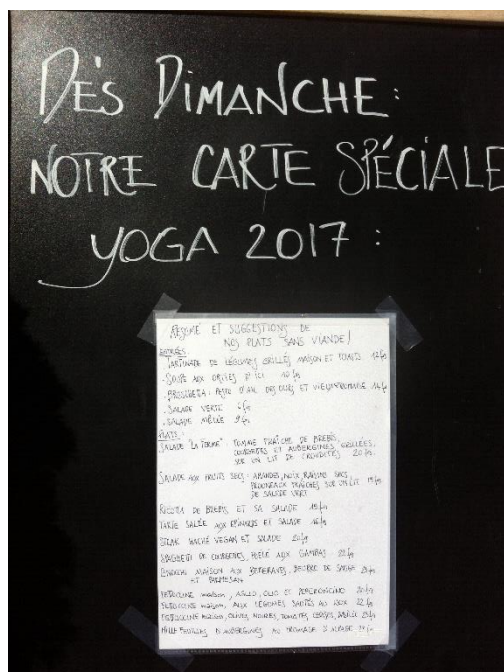 DÈS DIMANCHE :
NOTRE CARTE SPÉCIALE
YOGA 2017 :
RÉSUMÉ ET SUGGESTIONS DE
NOS PLATS SANS VIANDE !
ENTRÉES
TARTINADE DE LÉGUMES GRILLÉS MAISON ET TOASTS 12 frs
SOUPE AUX ORTIES D'ICI 10 frs
BRUSCHETTA : PESTO D'AIL DES OURS ET
SALADE VERTE 6 frs
SALADE MÊLÉE 9 frs
PLATS :
SALADE "LA FERME" : TOMME FRAÎCHE DE BREBIS,
COURGETTES ET AUBERGINES GRILLÉES,
SUR UN LIT DE CRUDITÉS 20 frs
SALADE AUX FRUITS SECS : AMANDES, NOIX, RAISINS SECS,
PRUNEAUX FRAÎCHES SUR UN LIT
DE SALADE VERT
RISOTTO DE BREBIS ET SA SALADE
TARTE SALÉE AUX ÉPINARDS ET SALADE
STEAK HACHÉ VEGAN ET SALADE 20 frs
SPAGHETTI DE COURGETTES, POÊLÉ AUX GAMBAS
GNOCCHI MAISON AUX BETTERAVES, BEURRE DE SAUGE
ET PARMESAN
FETTUCINE maison, AGLIO, OLIO ET PEPERONCINO
FETTUCCINE maison, AUX LÉGUMES SAUTÉS AU WOK 22 frs
FETTUCCINE maison, OLIVES NOIRES, TOMATES CERISES, BASILIC
MILLE FEUILLES D'AUBERGINES AU FROMAGE D'ALPAGE